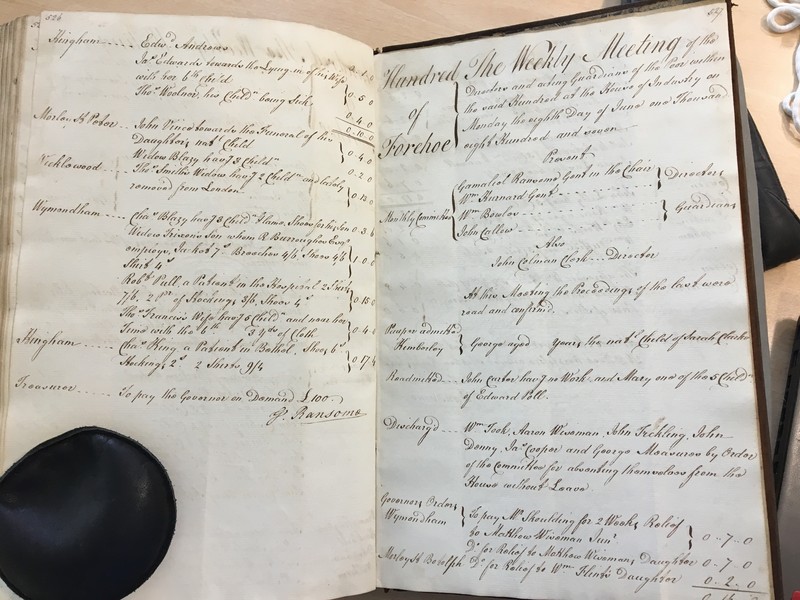 526
Hingham ..... Edwd Andrews
Jas Edwards towards the Lying in of his Wife
with her 6th Child
0. 5. 0
Thos Woolnor, his Childn being Sick
0. 4. 0
0. 10. 0
Morley St Peter ... John Vince towards the Funeral of his
Daughters natl Child
0. 4. 0
Widow Blazy hav'g 3 Childn
0. 2. 0
Wicklewood ..... Thos Smiths Widow hav'g 2 Childn and lately
removed from London
Wymondham .... Chas Blazy hav'g 3 Childn Lame, Shoes for his Son
Widow Son whom R. Burroughes Esqr
employs, Jacket 7s Breeches 4/6, Shoes 4/6
Shirt 4s
Robt Pull, a Patient in the Hospital 2 Shirts
7/6, 2 Prs of Stockings 3/6, Shoes 4s
0. 15. 0
Thos Francis's Wife hav'g 5 Childn and near her
time with the 6th 3 yds of Cloth
0. 4. 0
Hingham ..... Chas King a Patient in Bethel, Shoes 6s
Stockings 2s 2 Shirts 9/4
0. 17. 4
Treasurer ..... To pay the Governor on Demand £100.
G. Ransome
527
Hundred of Forehoe } The Weekly Meeting of the
Directors and acting Guardians of the Poor within
the said Hundred at the House of Industry on
Monday the eighth Day of June one Thousand
eight Hundred and seven
Present
Monthly Committee { Gamaliel Ransome Gent in the Chair
Wm Kurnard Gent } Directors
Wm Bowles
John Callow } Guardians
Also
John Colman Clerk .. Director
At this Meeting the Proceedings of the last were
read and confirmed
Pauper admitted
Kimberley } George aged Years the natl Child of Sarah Clarke
Readmitted ... John Carter hav'g no Work, and Mary one of the 5 Childn
of Edward Pell.
Dischargd ..... Wm Took, Aaron Wiseman, John Tickling, John
Denny, Jas Cooper and George Measures by Order
of the Committee for absenting themselves from the
House without Leave
Governors Orders
Wymondham } To pay Mr Shoulding for 2 Weeks Relief
to Matthew Wiseman Junr
0 .. 7 .. 0
Do for Relief to Matthew Wisemans Daughter 0 .. 7 .. 0
Morley St Botolph Do for Relief to Wm Flints Daughter 0 .. 2 .. 0